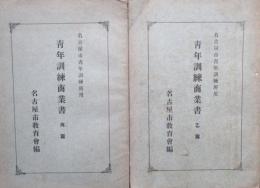 名古屋市青年訓練所用
青年訓練商業書 乙篇
名古屋市教育會編
名古屋市青年訓練所用
青年訓練商業書 丙篇
名古屋市教育會編